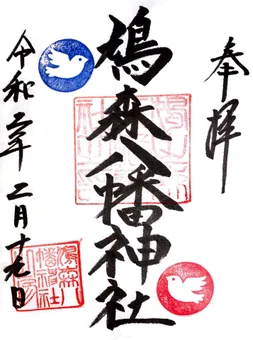 奉拝
鳩森八幡神社
令和二年 二月十九日